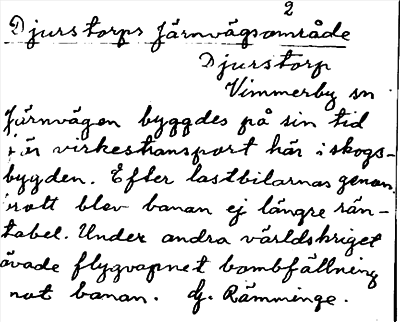 2
Djurstorps Järnvägsområde
Djurstorp
Vimmerby sn
Järnvägen byggdes på sin tid
för virkestransport här i skogs-
bygden. Efter lastbilarnas genom
brott blev banan ej längre rän-
tabel. Under andra världskriget
övade flygvapnet bombfällning
mot banan. Jfr. Rämminge.